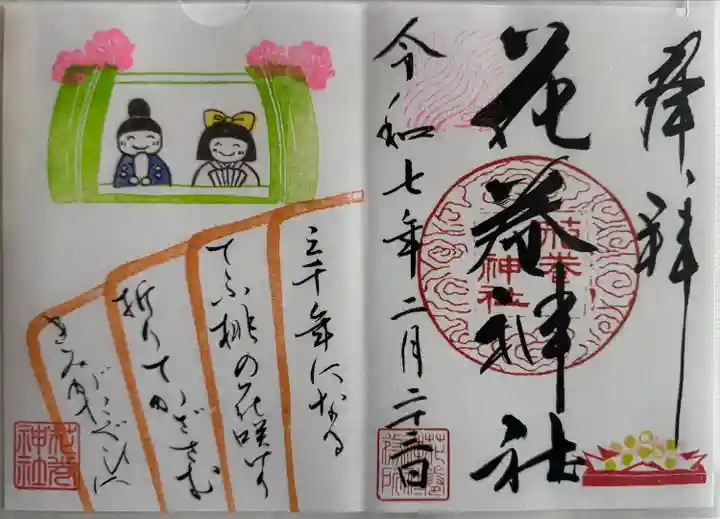 奉拝
花巻神社
令和七年二月二十三日
花巻神社
三千年になる
てふ桃の花咲けり
折りてかざさむ
きみがたぐひに
花巻神社